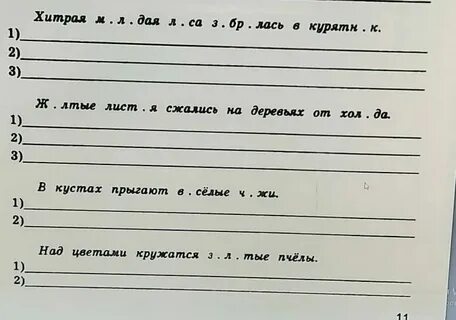 Хитрая м . л . дая л . са з . бр . лась в курятн . к.
1)
2)
3)
Ж . лтые лист . я сжались на деревьях от хол . да.
1)
2)
3)
В кустах прыгают в . сёлые ч . жи.
1)
2)
Над цветами кружатся з . л . тые пчёлы.
1)
2)
11